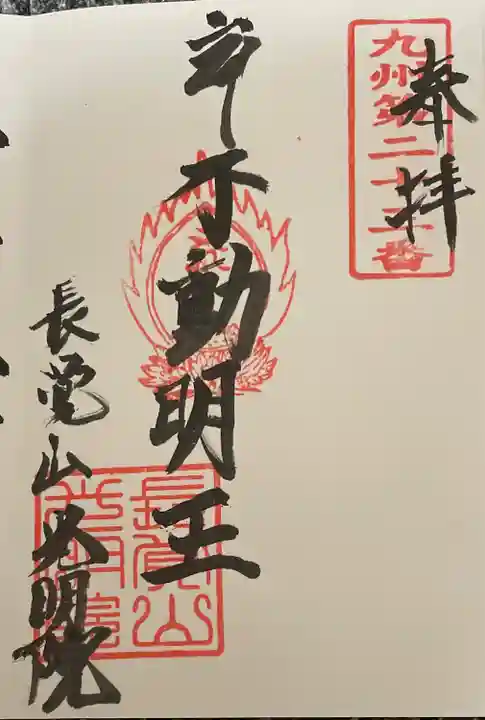 奉拝
九州第二十番
不動明王
長覚山光明院
長覺山
光明院